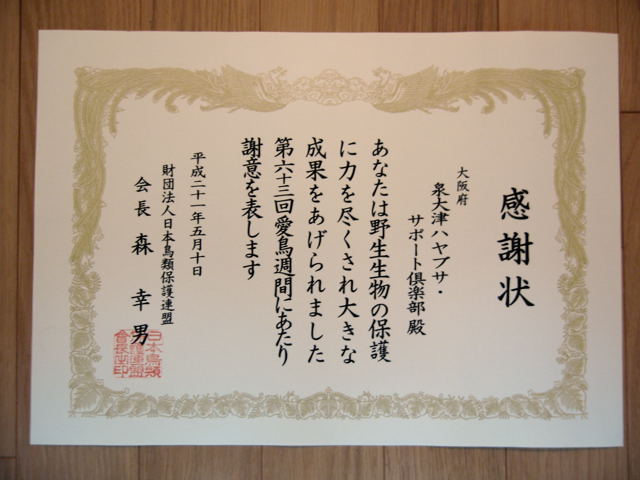 感謝状
大阪府
泉大津ハヤブサ・
サポート倶楽部 殿
あなたは野生生物の保護
に力を尽くされ大きな
成果をあげられました
第六十三回愛鳥週間にあたり
謝意を表します
平成二十一年五月十日
財団法人日本鳥類保護連盟
会長 森 幸男
日本鳥類
保護連盟
会長之印